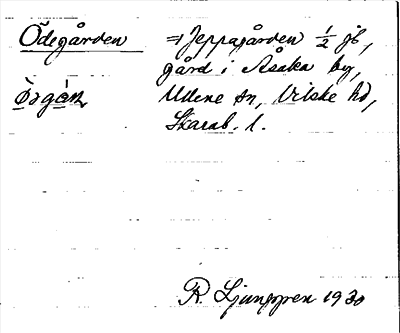 Ödegården = Jeppagården 1/2 jb,
gård i Åsaka by,
Ullene sn, Vilske hd,
Skarab. l.
R. Ljunggren 1930